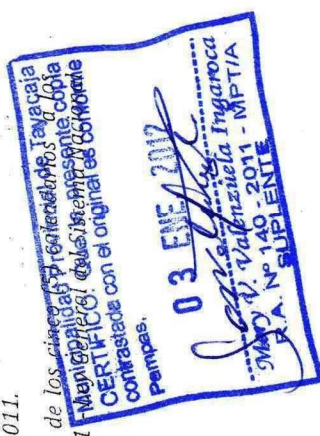 011.
de los cinco (5) calendarios a los
General del Sistema Nacional de
Municipalidad Provincial de Tayacaja
CERTIFICO: que la presente, copia
contrastada con el original es conforme
Pampas,
03 ENE 2012
Mary V. Valenzuela Ingaroca
R.A. Nº 140 - 2011 - MPT/A
SUPLENTE